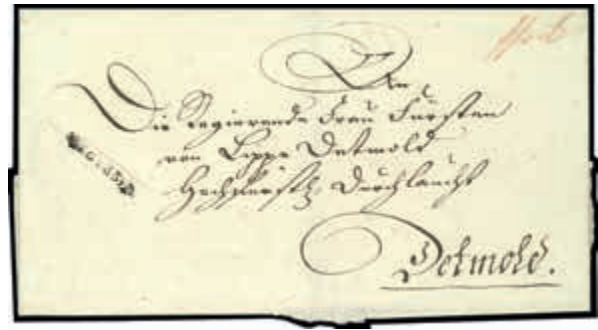 An
Die Regierende Frau Fürstin
von Lippe Detmold
Hochfürstl. Durchlaucht
Detmold.